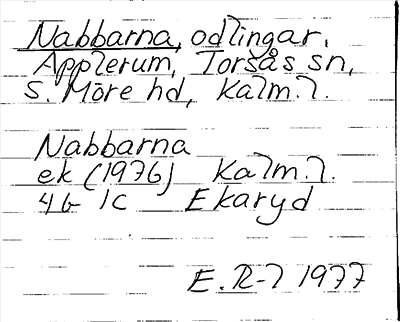 Nabbarna, odlingar,
Applerum, Torsås sn,
S. Möre hd, Kalm.l.
Nabbarna
ek (1976) Kalm.l.
4G 1c Ekaryd
E. R-l 1977